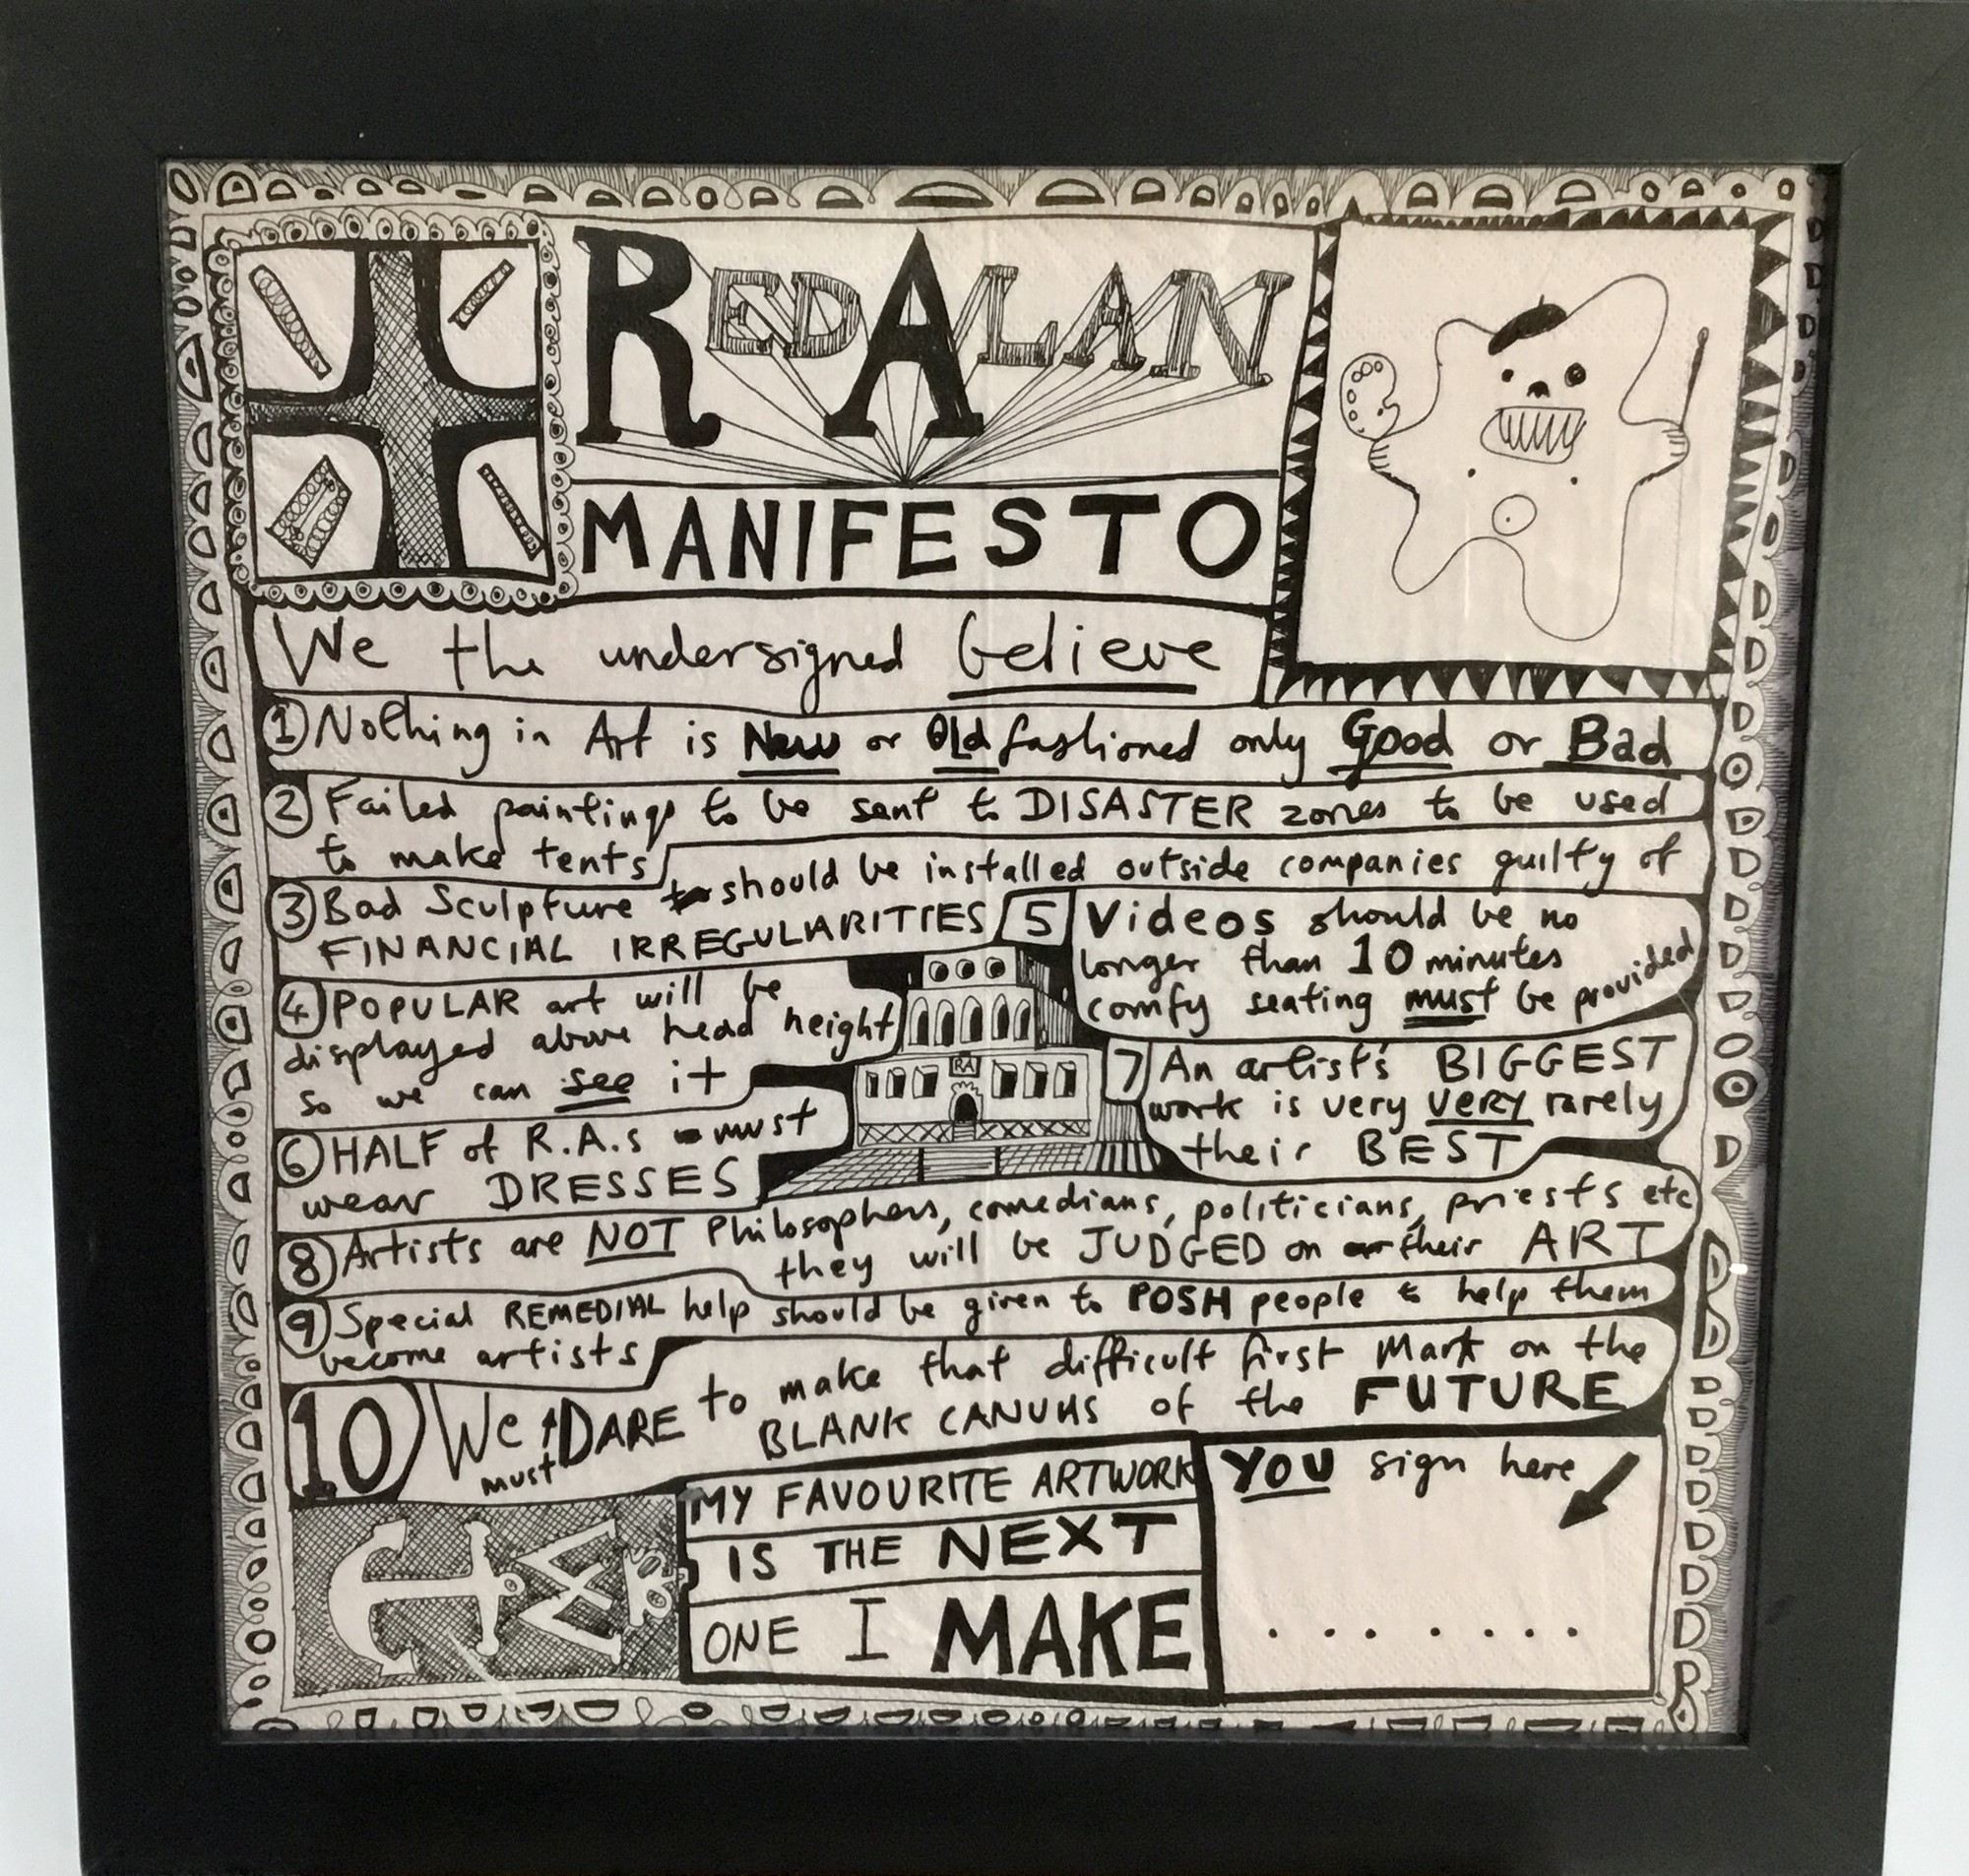 REDALAN
MANIFESTO
We the undersigned believe
1 Nothing in Art is New or Old fashioned only Good or Bad
2 Failed paintings to be sent to DISASTER zones to be used
to make tents
3 Bad Sculpture should be installed outside companies guilty of
FINANCIAL IRREGULARITIES
4 POPULAR art will be
displayed above head height
so we can see it
5 Videos should be no
longer than 10 minutes
comfy seating must be provided
RA
6 HALF of R.A.s must
wear DRESSES
7 An artist's BIGGEST
work is very VERY rarely
their BEST
8 Artists are NOT Philosophers, comedians, politicians, priests etc
they will be JUDGED on their ART
9 Special REMEDIAL help should be given to POSH people to help them
become artists
10 We must DARE to make that difficult first Mark on the
BLANK CANVAS of the FUTURE
MY FAVOURITE ARTWORK
IS THE NEXT
ONE I MAKE
YOU sign here
. . . . . . . .